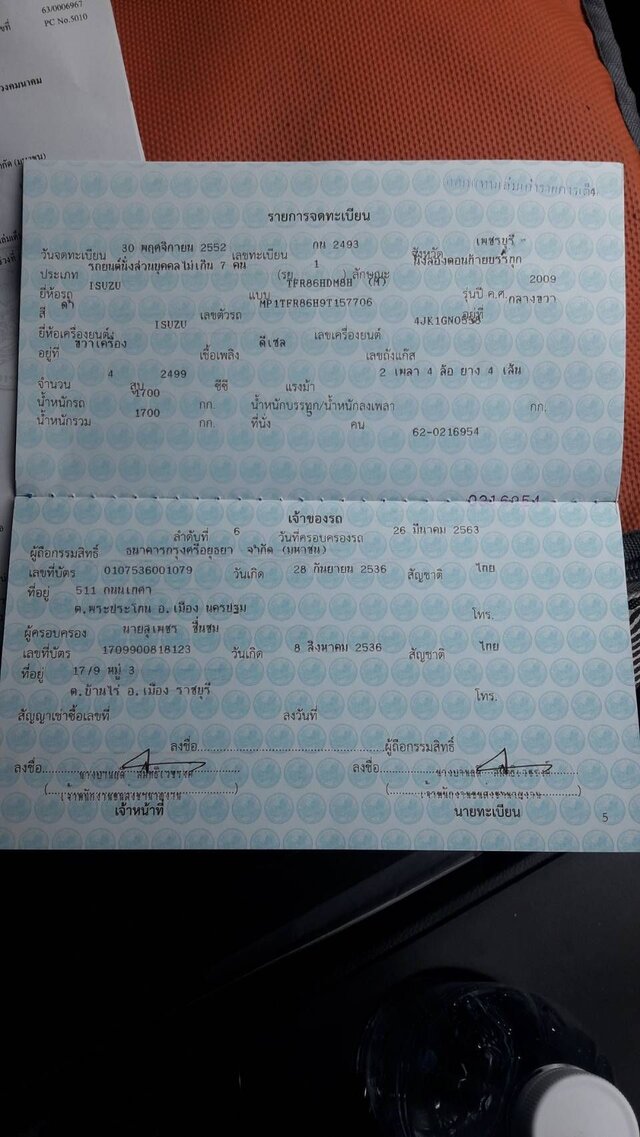 63/0006967
PC No.5010
วงคมนาคม
รายการจดทะเบียน
วันจดทะเบียน 30 พฤศจิกายน 2552 เลขทะเบียน กน 2493 จังหวัด เพชรบุรี
ประเภท รถยนต์นั่งส่วนบุคคลไม่เกิน 7 คน (รย 1 ) ลักษณะ นั่งสองตอนท้ายบรรทุก
ยี่ห้อรถ ISUZU แบบ TFR86HDM8H (M) รุ่นปี ค.ศ. 2009
สี ดำ เลขตัวรถ MP1TFR86H9T157706 อยู่ที่ กลางขวา
ยี่ห้อเครื่องยนต์ ISUZU เลขเครื่องยนต์
อยู่ที่ ขวาเครื่อง เชื้อเพลิง ดีเซล เลขถังแก๊ส
จำนวน 4 สูบ 2499 ซีซี แรงม้า 2 เพลา 4 ล้อ ยาง 4 เส้น
น้ำหนักรถ 1700 กก. น้ำหนักบรรทุก/น้ำหนักลงเพลา กก.
น้ำหนักรวม 1700 กก. ที่นั่ง คน 62-0216954
0216954
เจ้าของรถ
ลำดับที่ 6 วันที่ครอบครองรถ 26 มีนาคม 2563
ผู้ถือกรรมสิทธิ์ ธนาคารกรุงศรีอยุธยา จำกัด (มหาชน)
เลขที่บัตร 0107536001079 วันเกิด 28 กันยายน 2536 สัญชาติ ไทย
ที่อยู่ 511 ถนนเทศา
ต.พระประโทน อ.เมือง นครปฐม โทร.
ผู้ครอบครอง นายสุเพชร ชื่นชม
เลขที่บัตร 1709900818123 วันเกิด 8 สิงหาคม 2536 สัญชาติ ไทย
ที่อยู่ 17/9 หมู่ 3
ต.บ้านไร่ อ.เมือง ราชบุรี โทร.
สัญญาเช่าซื้อเลขที่ ลงวันที่
ลงชื่อ ผู้ถือกรรมสิทธิ์
ลงชื่อ ลงชื่อ
(เจ้าพนักงานขนส่งชำนาญงาน) (เจ้าพนักงานขนส่งชำนาญงาน)
เจ้าหน้าที่ นายทะเบียน
5